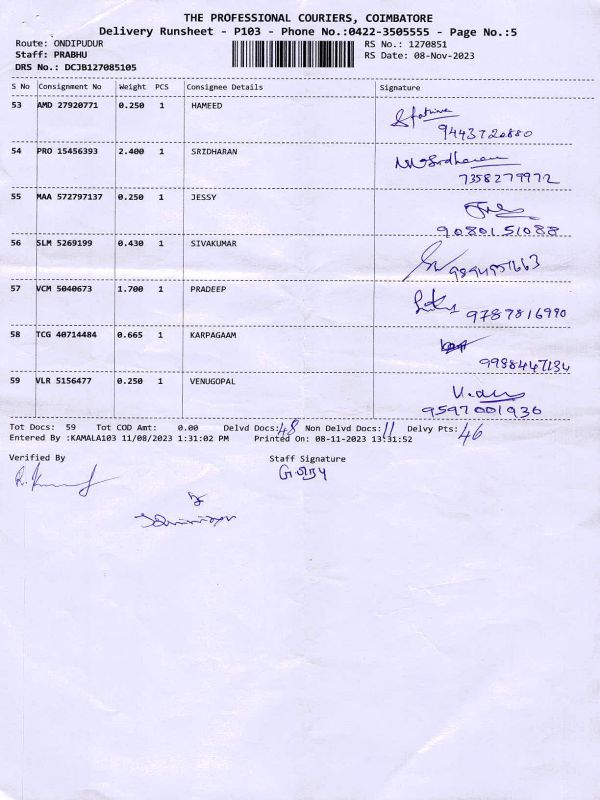 THE PROFESSIONAL COURIERS, COIMBATORE
Delivery Runsheet - P103 - Phone No.:0422-3505555 - Page No.:5
Route: ONDIPUDUR RS No.: 1270851
Staff: PRABHU RS Date: 08-Nov-2023
DRS No.: DCJB127085105
S No Consignment No Weight PCS Consignee Details Signature
53 AMD 27920771 0.250 1 HAMEED
9443720880
54 PRO 15456393 2.400 1 SRIDHARAN Sridharan
7358279972
55 MAA 572797137 0.250 1 JESSY
9080151088
56 SLM 5269199 0.430 1 SIVAKUMAR
57 VCM 5040673 1.700 1 PRADEEP
9787816990
58 TCG 40714484 0.665 1 KARPAGAAM
9998447134
59 VLR 5156477 0.250 1 VENUGOPAL
9597001936
Tot Docs: 59 Tot COD Amt: 0.00 Delvd Docs: 48 Non Delvd Docs: 11 Delvy Pts: 46
Entered By :KAMALA103 11/08/2023 1:31:02 PM Printed On: 08-11-2023 13:31:52
Verified By Staff Signature